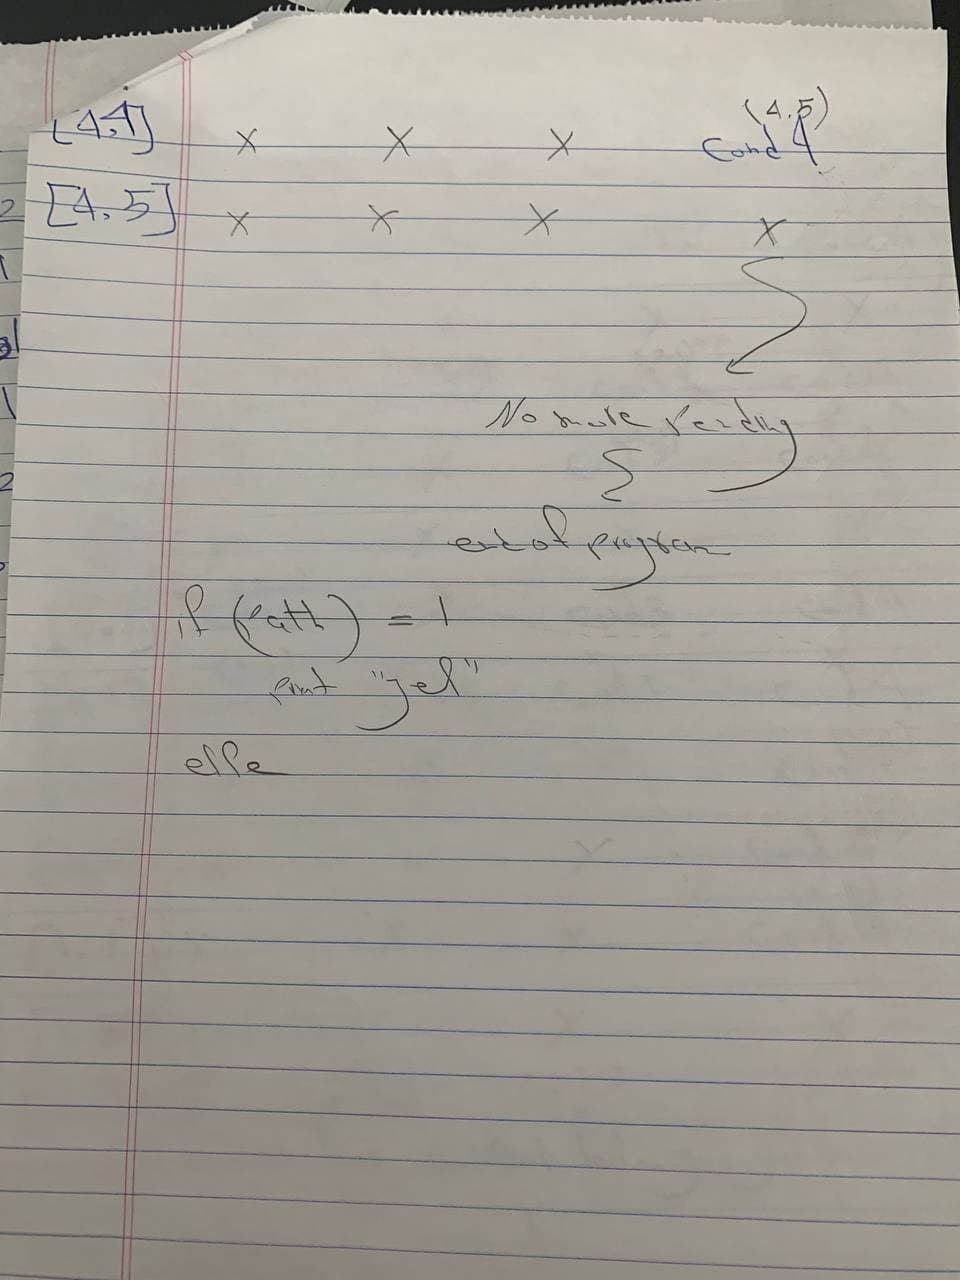 (4,5)
[4,4] X X X Cond 4
[4,5] X X X X
No more reading
end of program
if (Path) = 1
print "yes"
else